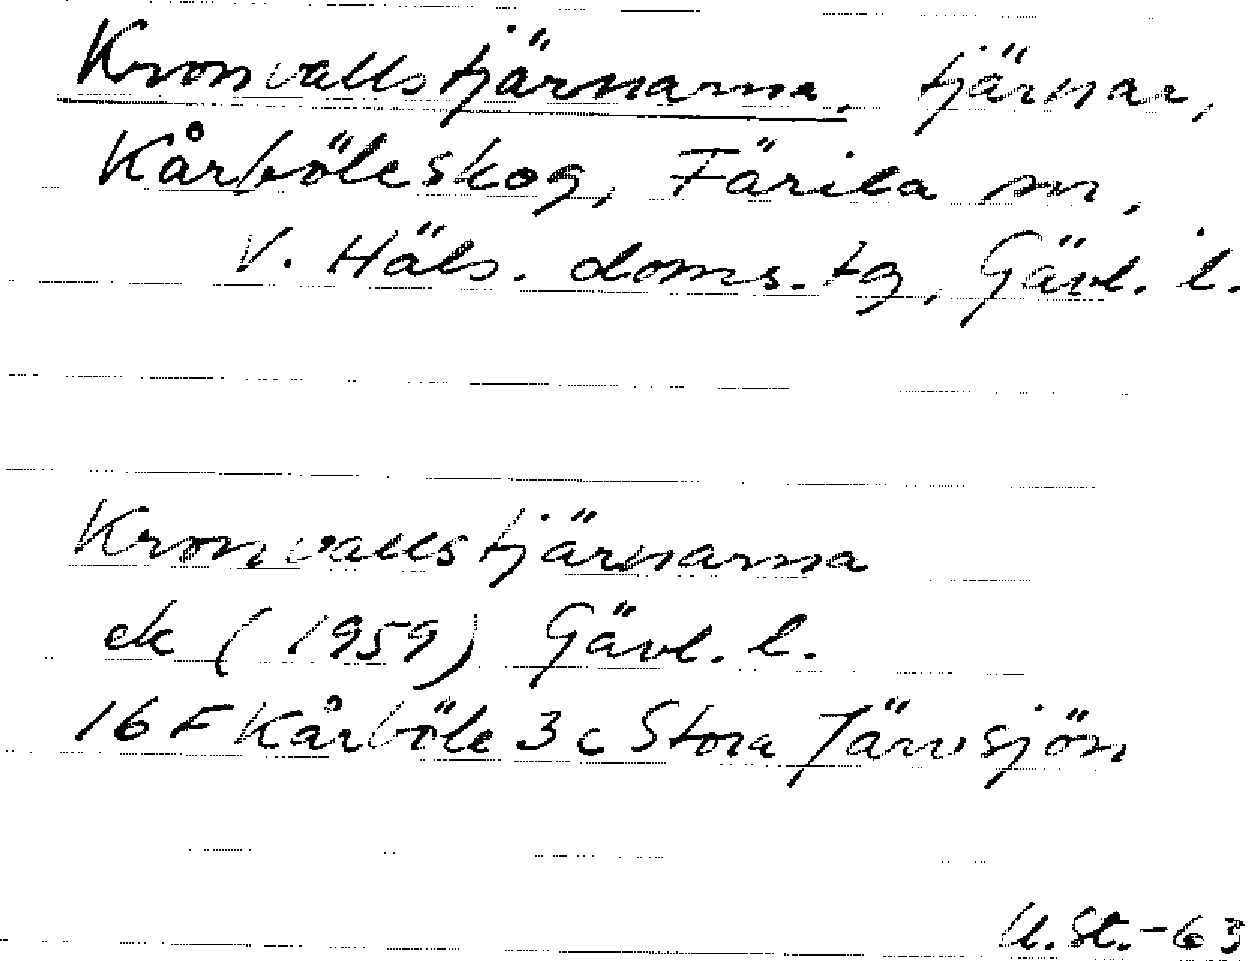 Kronvallstjärnarna, tjärnar,
Kårböleskog, Färila sn,
V. Häls. doms. tg, Gävl. l.
Kronvallstjärnarna
ek (1959) Gävl. l.
16 F Kårböle 3 c Stora Järvsjön
U. St. -63